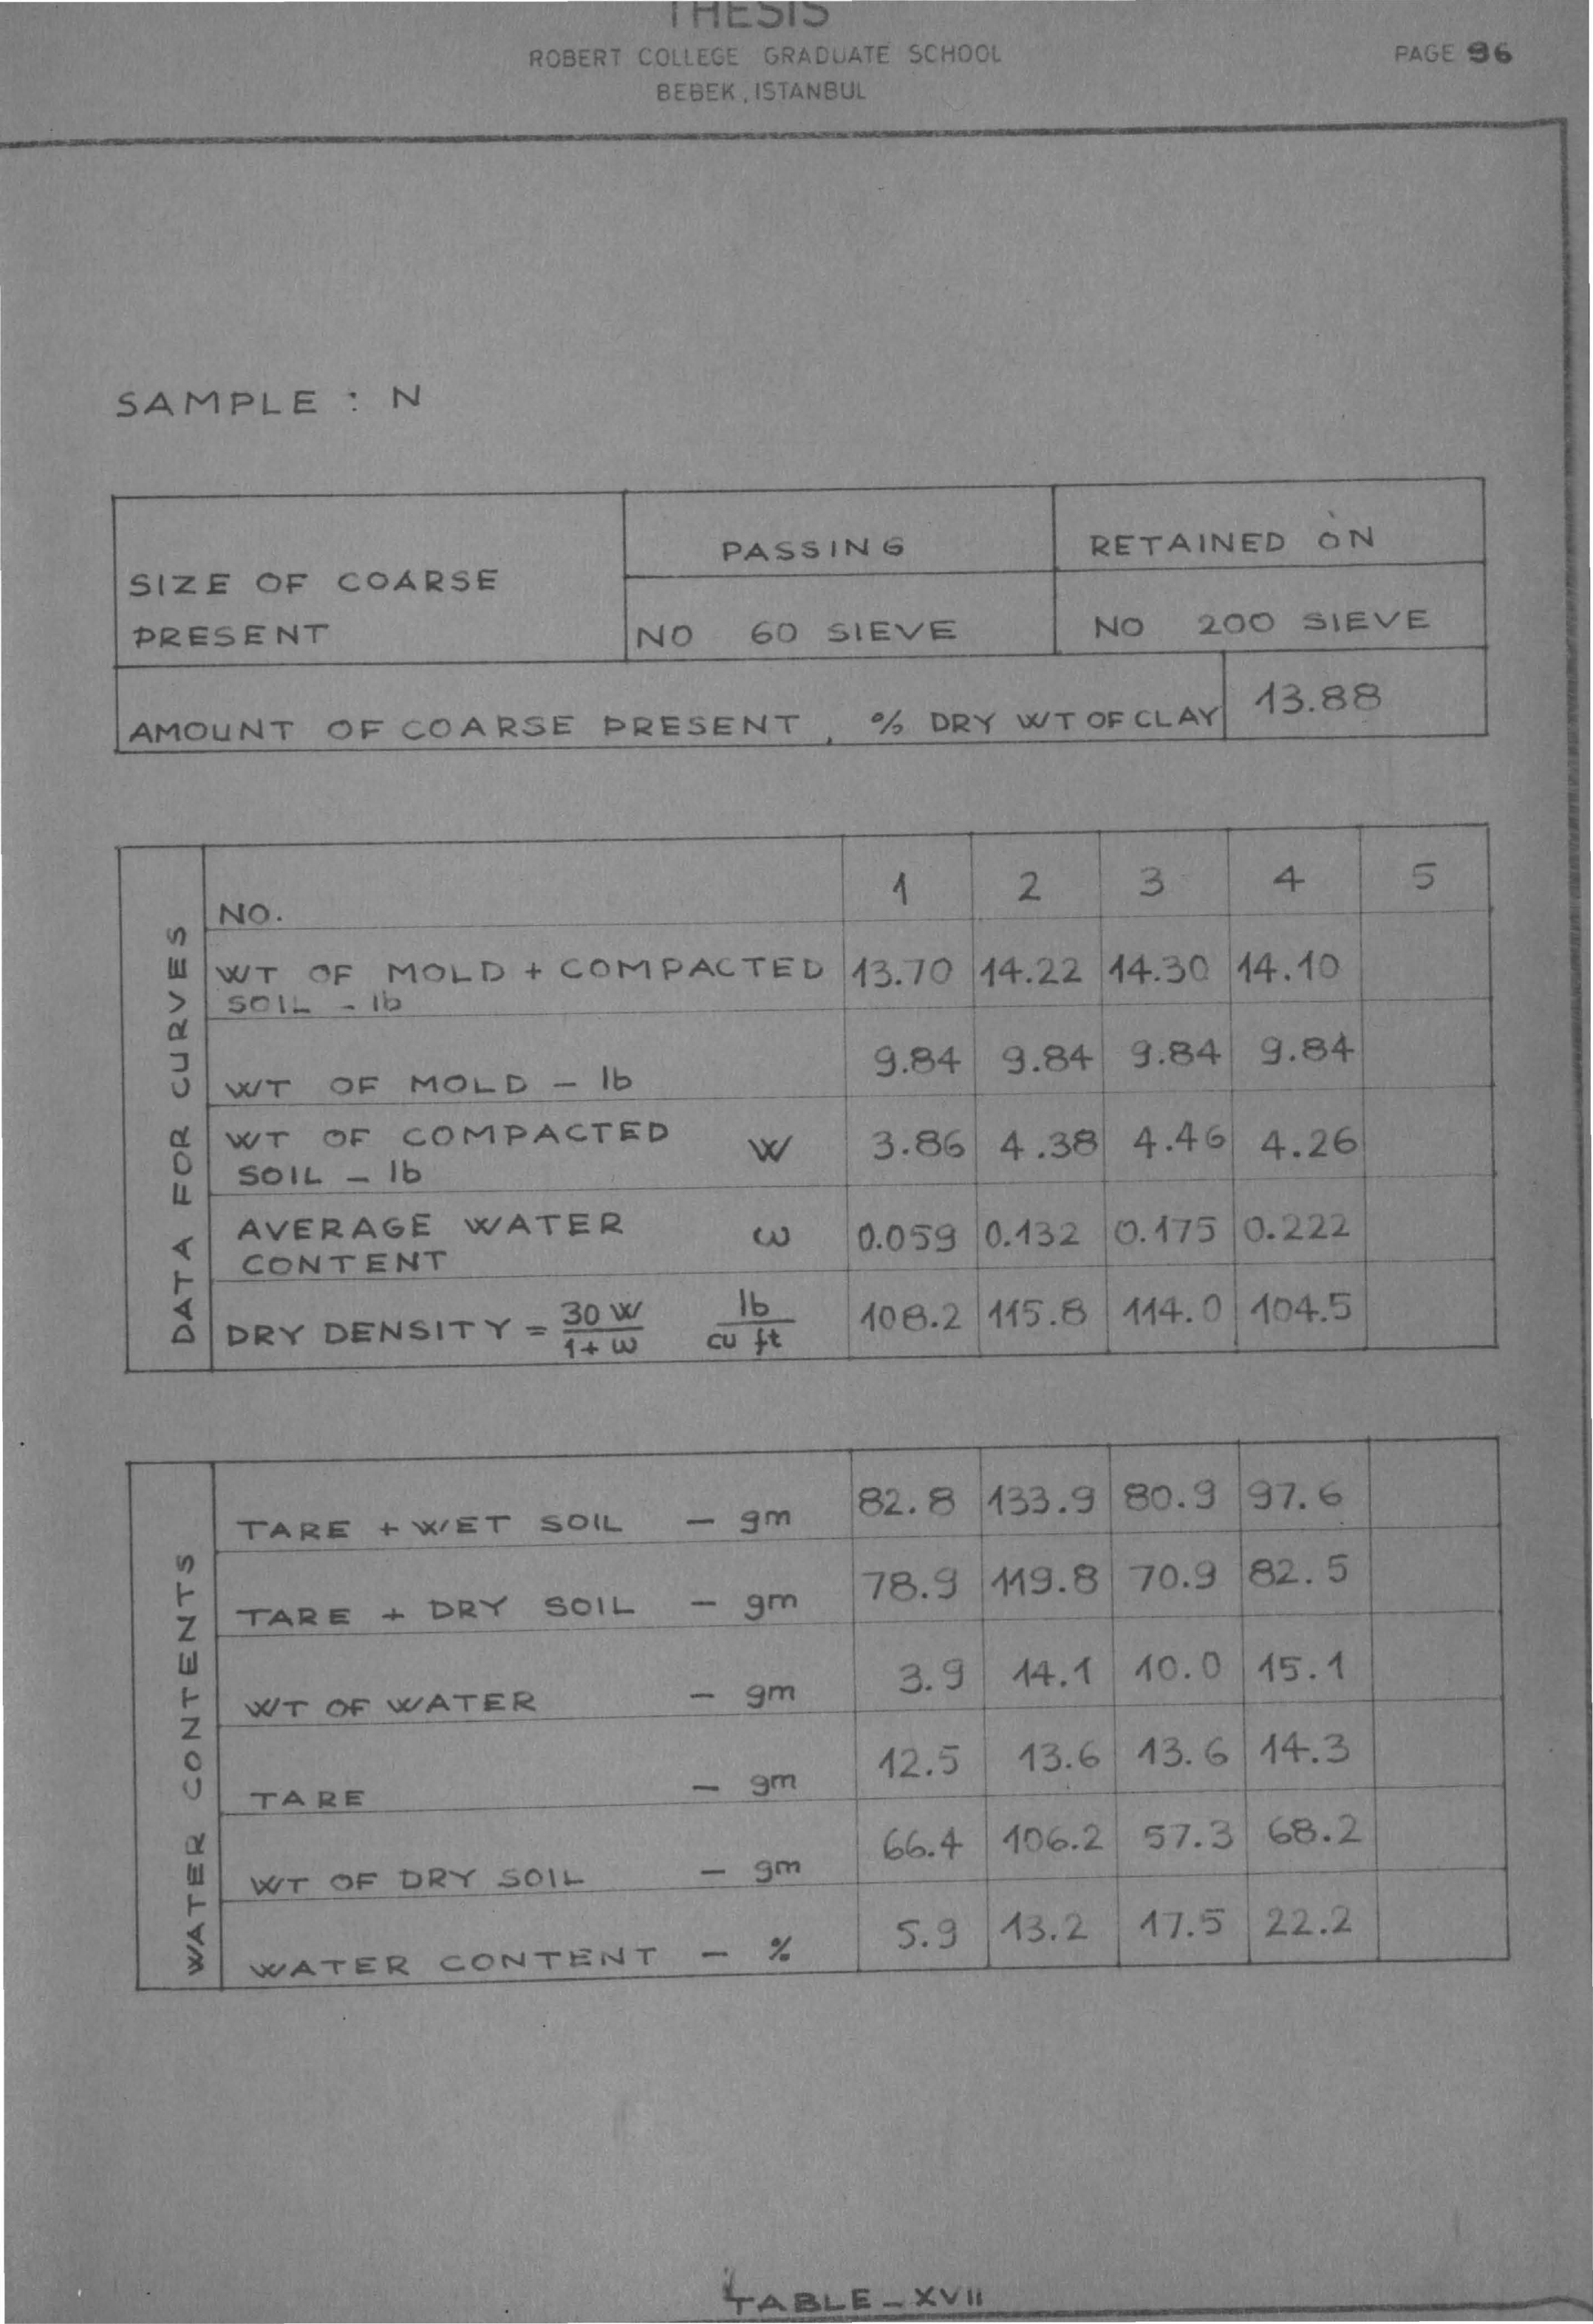 THESIS
ROBERT COLLEGE GRADUATE SCHOOL
PAGE 96
BEBEK, ISTANBUL
SAMPLE : N
SIZE OF COARSE PRESENT PASSING RETAINED ON
NO 60 SIEVE NO 200 SIEVE
AMOUNT OF COARSE PRESENT, % DRY WT OF CLAY 13.88
DATA FOR CURVES
NO. 1 2 3 4 5
WT OF MOLD + COMPACTED SOIL - lb 13.70 14.22 14.30 14.10
WT OF MOLD - lb 9.84 9.84 9.84 9.84
WT OF COMPACTED SOIL - lb W 3.86 4.38 4.46 4.26
AVERAGE WATER CONTENT ω 0.059 0.132 0.175 0.222
DRY DENSITY = 30 W / 1 + ω lb / cu ft 108.2 115.8 114.0 104.5
WATER CONTENTS
TARE + WET SOIL - gm 82.8 133.9 80.9 97.6
TARE + DRY SOIL - gm 78.9 119.8 70.9 82.5
WT OF WATER - gm 3.9 14.1 10.0 15.1
TARE - gm 12.5 13.6 13.6 14.3
WT OF DRY SOIL - gm 66.4 106.2 57.3 68.2
WATER CONTENT - % 5.9 13.2 17.5 22.2
TABLE - XVII